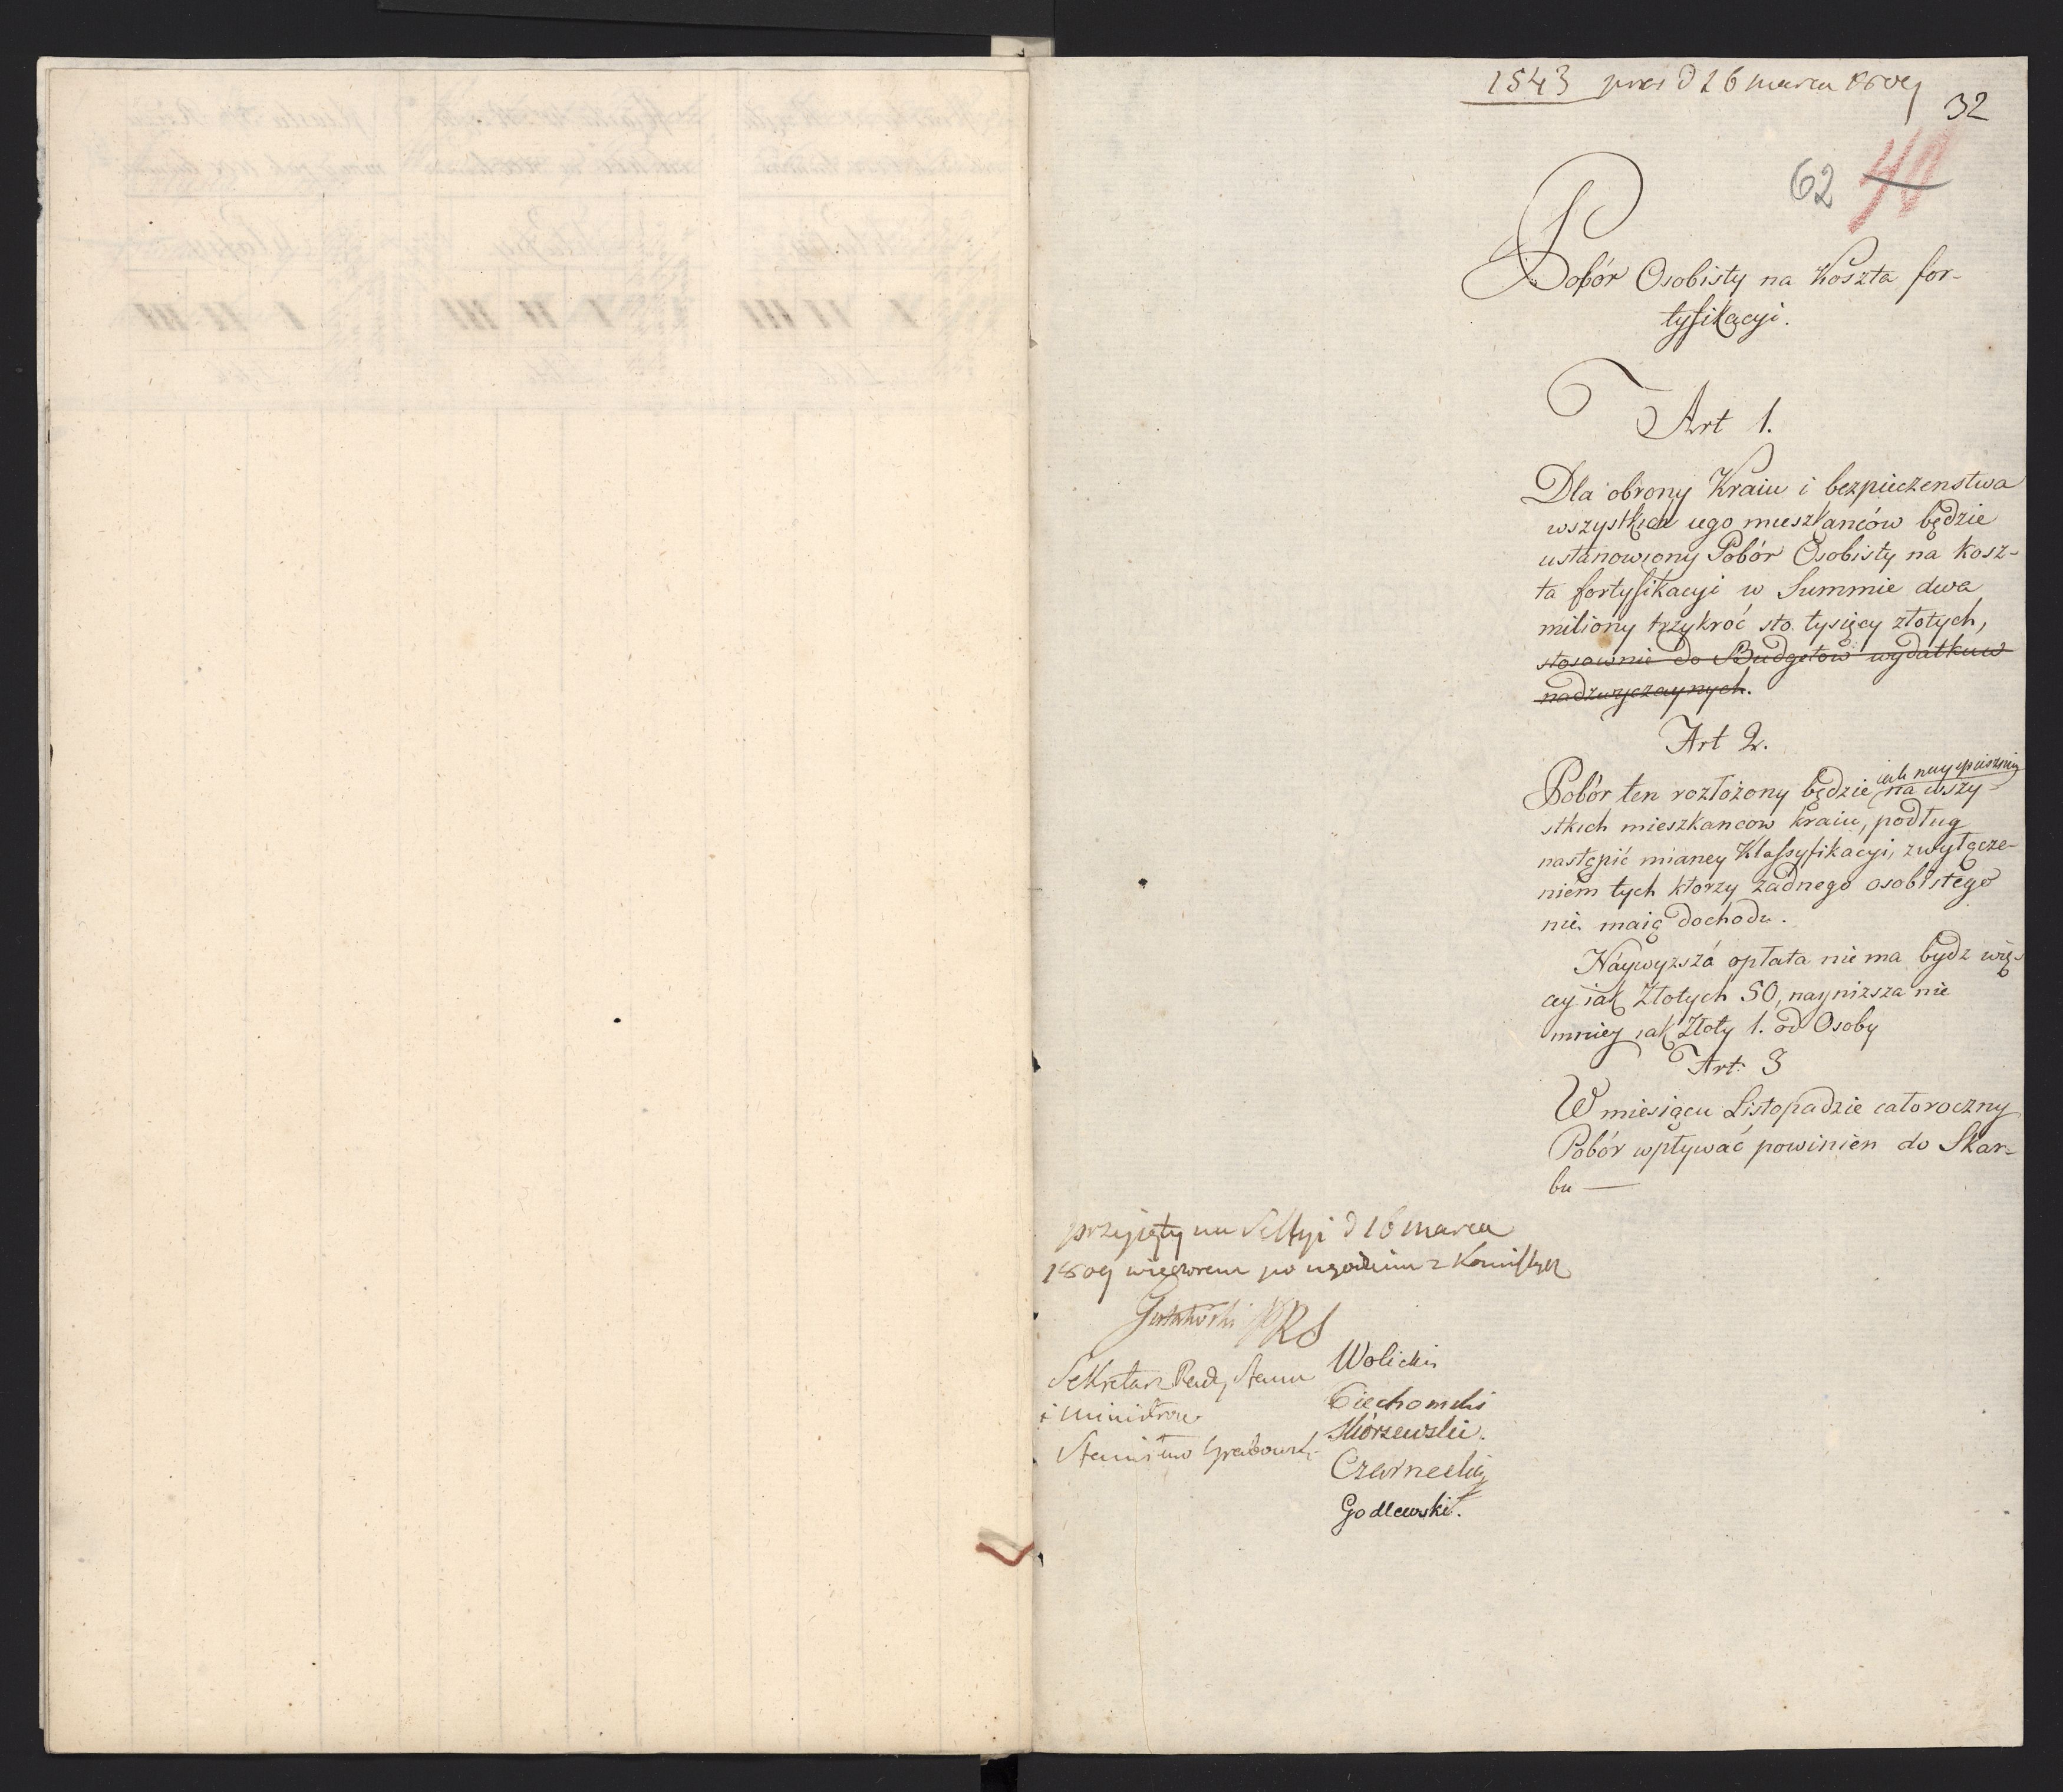 1543 pres d 26 marca 1809
32
62 40
Pobór Osobisty na Koszta for-
tyfikacyi.
Art 1.
Dla obrony Kraiu i bezpieczenstwa
wszystkich iego mieszkanców będzie
ustanowiony Pobór Osobisty na kosz-
ta fortyfikacyi w Summie dwa
miliony trzykroć sto tysięcy złotych,
stosownie do Budgetow wydatkuw
nadzwyczaynych.
Art 2.
iak nayspieszniey
Pobór ten rozłożony będzie na wszy-
stkich mieszkancow kraiu, podług
nastąpić mianey Klassyfikacyi, zwyłącze-
niem tych ktorzy żadnego osobistego
nie maią dochodu.
Naywyzsza opłata nie ma bydz wię-
cey iak Złotych 50, naynizsza nie
mniey iak Złoty 1. od Osoby
Art. 3
W miesiącu Listopadzie całoroczny
Pobór wpływać powinien do Skar-
bu —
przyjęty na Sessyi d 16 marca
1809 wieczorem po ugodzeniu z Komissyą
Gutakowski PRS
Sekretarz Rady Stanu
i Ministrow
Stanisław Grabowski
Wolicki
Ciechomski
Skórzewski.
Czarnecki
Godlewski.
I II III I II III I II III